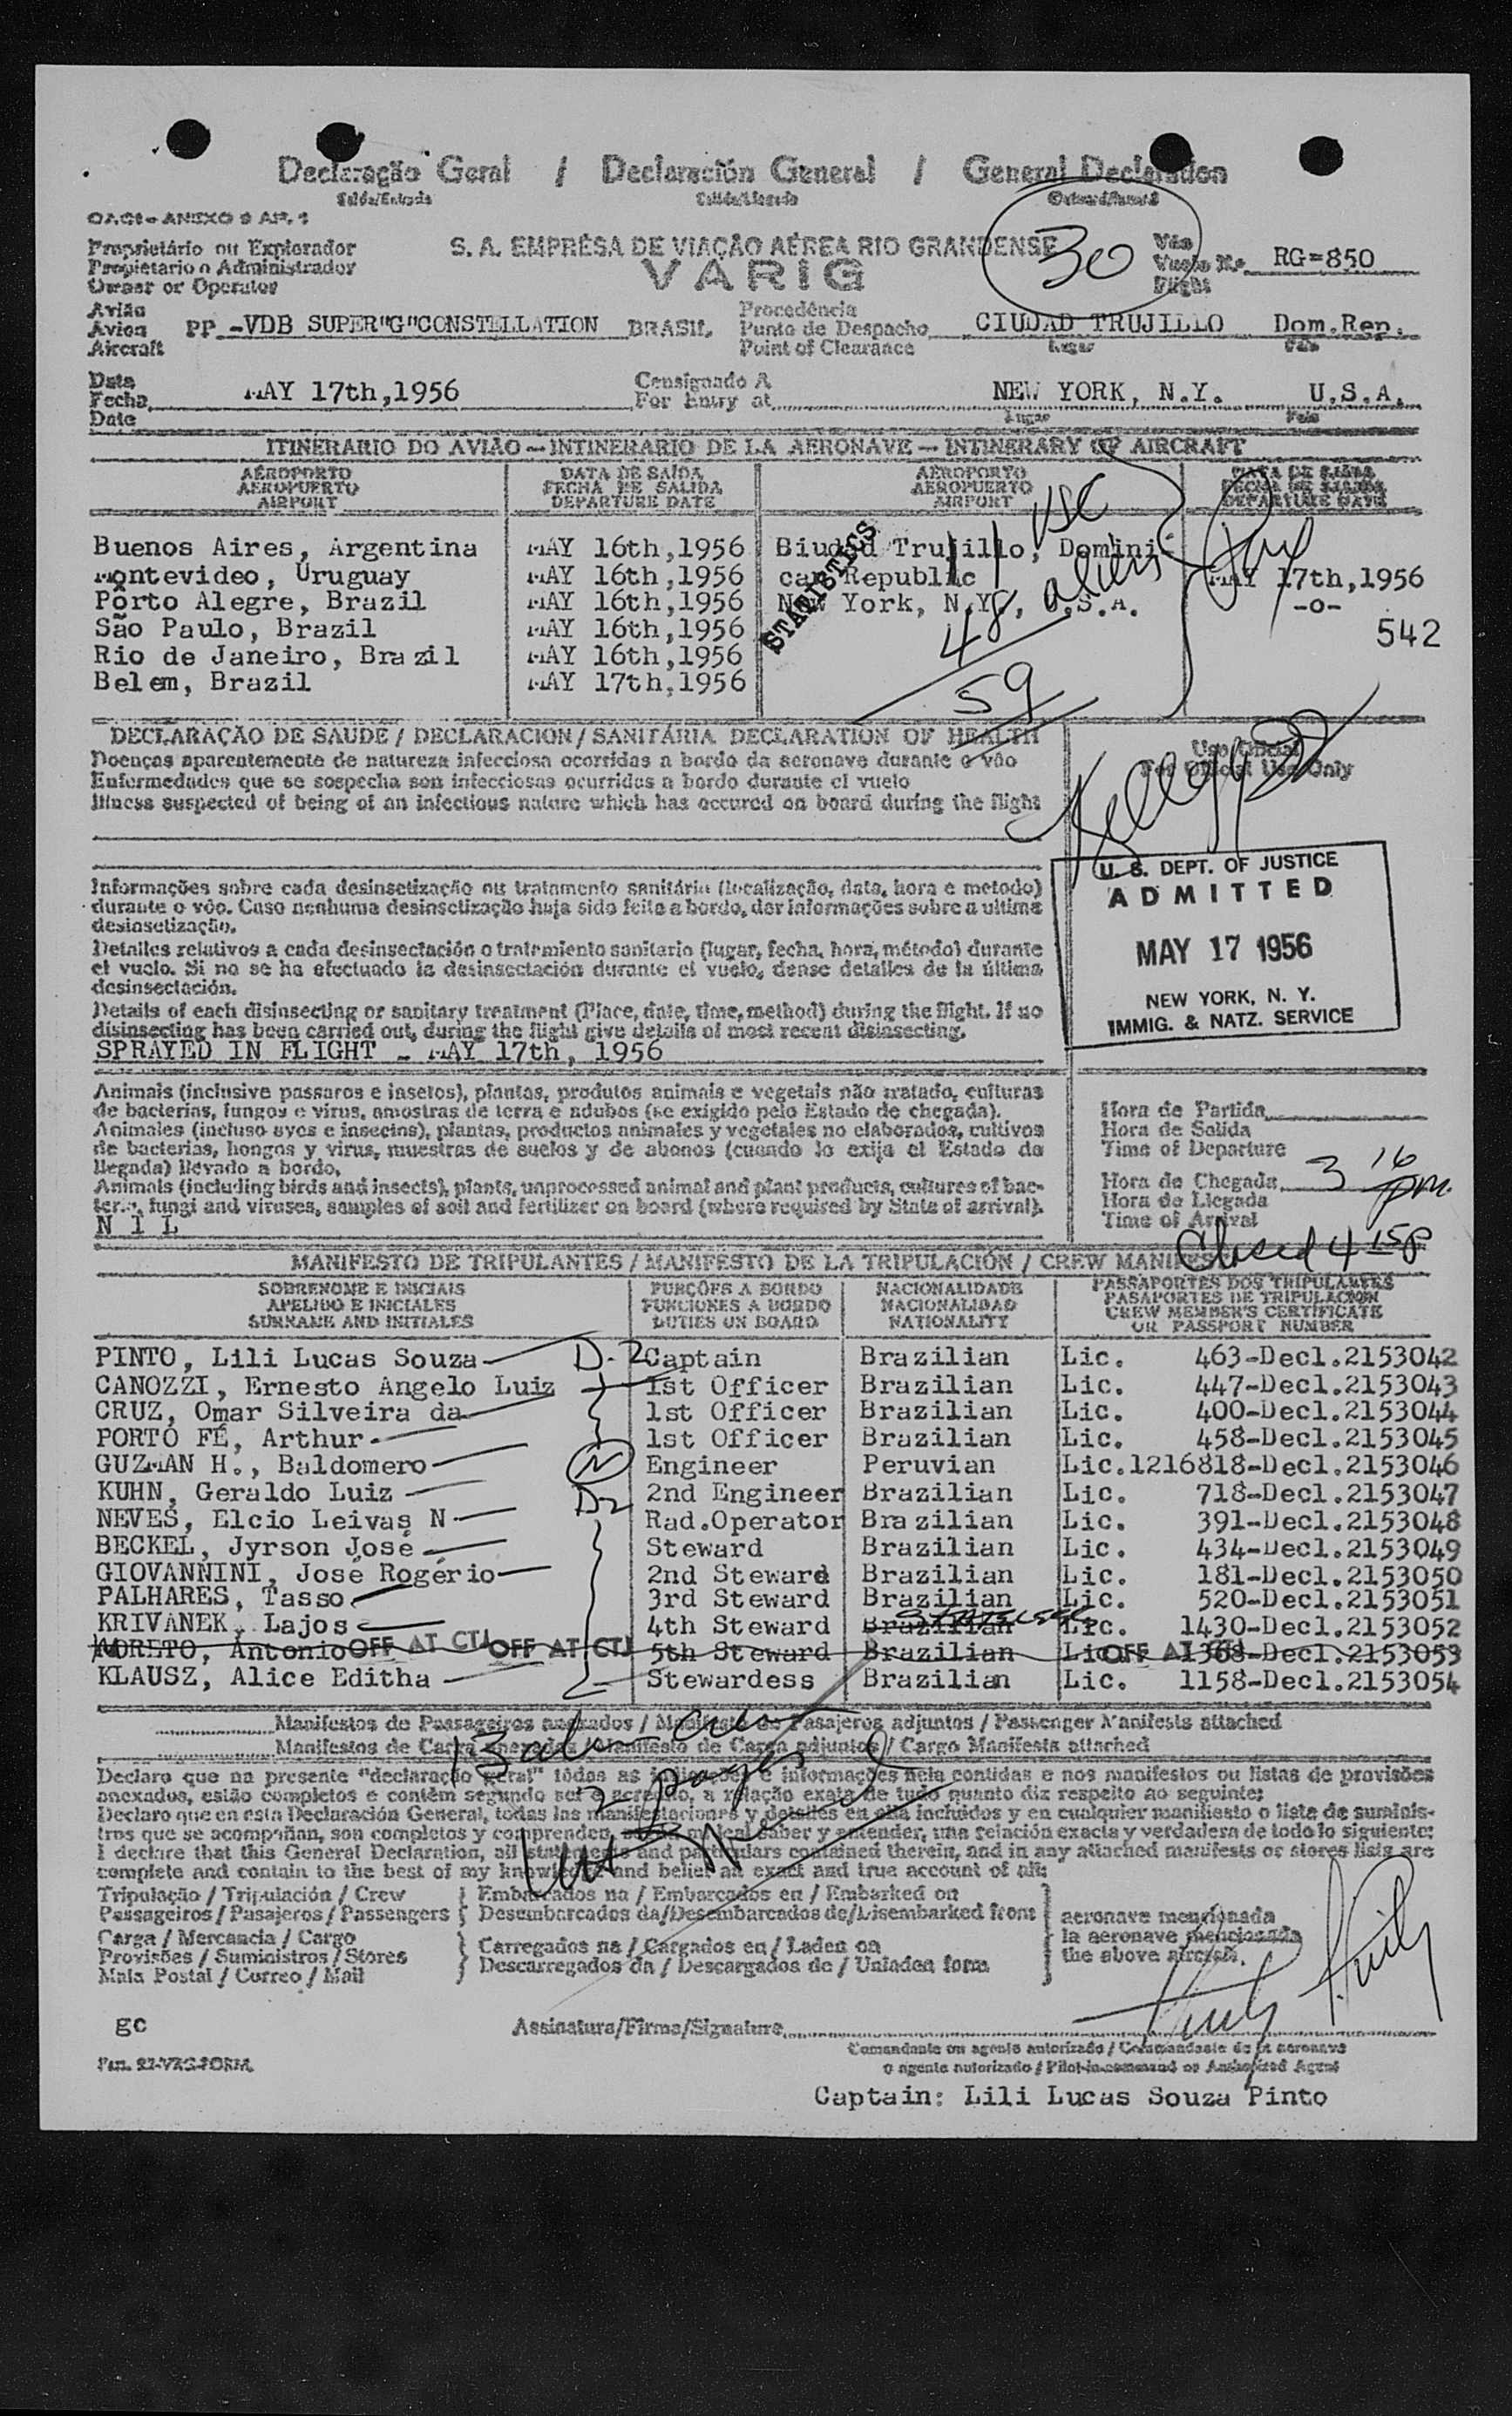 Declaração Geral / Declaración General / General Declaration
Saída/Entrada Salida/Llegada Outward/Inward
OACI - ANEXO 9 AP. 1
Proprietário ou Explorador
Propietario o Administrador
Owner or Operator
S. A. EMPRÊSA DE VIAÇÃO AÉREA RIO GRANDENSE
VARIG
30
Vôo
Vuelo N.º RG=850
Flight
Avião
Avion PP -VDB SUPER"G"CONSTELLATION BRASIL
Aircraft
Procedência
Punto de Despacho CIUDAD TRUJILLO Dom.Rep.
Point of Clearance Lugar País
Data
Fecha MAY 17th,1956
Date
Consignado A
For Entry at NEW YORK, N.Y. U.S.A.
Lugar País
ITINERARIO DO AVIÃO — INTINERARIO DE LA AERONAVE — INTINERARY OF AIRCRAFT
AÉROPORTO DATA DE SAÍDA AÉROPORTO DATA DE SAÍDA
AEROPUERTO FECHA DE SALIDA AEROPUERTO FECHA DE SALIDA
AIRPORT DEPARTURE DATE AIRPORT DEPARTURE DATE
Buenos Aires, Argentina MAY 16th,1956 Biudad Trujillo, Domini-
Montevideo, Uruguay MAY 16th,1956 can Republic MAY 17th,1956
Pôrto Alegre, Brazil MAY 16th,1956 New York, N.Y., U.S.A. -o-
São Paulo, Brazil MAY 16th,1956
Rio de Janeiro, Brazil MAY 16th,1956
Belem, Brazil MAY 17th,1956
STATISTICS
11 USC
48 aliens
59
542
DECLARAÇÃO DE SAUDE / DECLARACION / SANITÁRIA DECLARATION OF HEALTH
Doenças aparentemente de natureza infecciosa ocorridas a bordo da aeronave durante o vôo
Enfermedades que se sospecha son infecciosas ocurridas a bordo durante el vuelo
Illness suspected of being of an infectious nature which has occured on board during the flight
Uso Oficial
For Official Use Only
U. S. DEPT. OF JUSTICE
ADMITTED
MAY 17 1956
NEW YORK, N. Y.
IMMIG. & NATZ. SERVICE
Informações sobre cada desinsetização ou tratamento sanitário (localização, data, hora e metodo)
durante o vôo. Caso nenhuma desinsetização haja sido feita a bordo, dar informações sobre a ultima
desinsetização.
Detalles relativos a cada desinsectación o tratamiento sanitario (lugar, fecha, hora, método) durante
el vuelo. Si no se ha efectuado la desinsectación durante el vuelo, dense detalles de la última
desinsectación.
Details of each disinsecting or sanitary treatment (Place, date, time, method) during the flight. If no
disinsecting has been carried out, during the flight give details of most recent disinsecting.
SPRAYED IN FLIGHT - MAY 17th, 1956
Animais (inclusive passaros e insetos), plantas, produtos animais e vegetais não tratado, culturas
de bacterias, fungos e virus, amostras de terra e adubos (se exigido pelo Estado de chegada).
Animales (incluso aves e insectos), plantas, productos animales y vegetales no elaborados, cultivos
de bacterias, hongos y virus, muestras de suelos y de abonos (cuando lo exija el Estado de
llegada) llevado a bordo.
Animals (including birds and insects), plants, unprocessed animal and plant products, cultures of bac-
teria, fungi and viruses, samples of soil and fertilizer on board (where required by State of arrival).
N I L
Hora de Partida
Hora de Salida
Time of Departure
Hora de Chegada 3 16 pm.
Hora de Llegada
Time of Arrival
Closed 4 15p
MANIFESTO DE TRIPULANTES / MANIFESTO DE LA TRIPULACIÓN / CREW MANIFEST
SOBRENOME E INICIAIS FUNÇÕES A BORDO NACIONALIDADE PASSAPORTES DOS TRIPULANTES
APELIDO E INICIALES FUNCIONES A BORDO NACIONALIDAD PASAPORTES DE TRIPULACION
SURNAME AND INITIALES DUTIES ON BOARD NATIONALITY CREW MEMBER'S CERTIFICATE
OR PASSPORT NUMBER
PINTO, Lili Lucas Souza D-2 Captain Brazilian Lic. 463-Decl.2153042
CANOZZI, Ernesto Angelo Luiz 1st Officer Brazilian Lic. 447-Decl.2153043
CRUZ, Omar Silveira da 1st Officer Brazilian Lic. 400-Decl.2153044
PORTO FÉ, Arthur 1st Officer Brazilian Lic. 458-Decl.2153045
GUZMAN H., Baldomero N Engineer Peruvian Lic.1216818-Decl.2153046
KUHN, Geraldo Luiz D2 2nd Engineer Brazilian Lic. 718-Decl.2153047
NEVES, Elcio Leivas N. Rad.Operator Brazilian Lic. 391-Decl.2153048
BECKEL, Jyrson José Steward Brazilian Lic. 434-Decl.2153049
GIOVANNINI, José Rogério 2nd Steward Brazilian Lic. 181-Decl.2153050
PALHARES, Tasso 3rd Steward Brazilian Lic. 520-Decl.2153051
KRIVANEK, Lajos 4th Steward Brazilian STATELESS Lic. 1430-Decl.2153052
MORETO, Antonio OFF AT CTJ OFF AT CTJ 5th Steward Brazilian Lic. OFF AT CTJ 1368-Decl.2153053
KLAUSZ, Alice Editha Stewardess Brazilian Lic. 1158-Decl.2153054
Manifestos de Passageiros anexados / Manifiesto de Pasajeros adjuntos / Passenger Manifests attached
Manifestos de Carga anexados / Manifiesto de Carga adjuntos / Cargo Manifests attached
2 pages
Declaro que na presente "declaração geral" tôdas as indicações e informações nela contidas e nos manifestos ou listas de provisões
anexados, estão completos e contêm segundo sei e acredito, a relação exata de tudo quanto diz respeito ao seguinte:
Declaro que en esta Declaración General, todas las manifestaciones y detalles en ella incluidos y en cualquier manifiesto o lista de suminis-
tros que se acompañan, son completos y comprenden, a mi leal saber y entender, una relación exacta y verdadera de todo lo siguiente:
I declare that this General Declaration, all statements and particulars contained therein, and in any attached manifests or stores lists are
complete and contain to the best of my knowledge and belief an exact and true account of all:
Tripulação / Tripulación / Crew Embarcados na / Embarcados en / Embarked on
Passageiros / Pasajeros / Passengers Desembarcados da/Desembarcados de/Disembarked from aeronave mencionada
Carga / Mercancia / Cargo la aeronave mencionada
Provisões / Suministros / Stores Carregados na / Cargados en / Laden on the above aircraft.
Mala Postal / Correo / Mail Descarregados da / Descargados de / Unladen form
gc
Assinatura/Firma/Signature
Comandante ou agente autorizado / Commandante de la aeronave
o agente autorizado / Pilot-in-command or Authorized Agent
Captain: Lili Lucas Souza Pinto